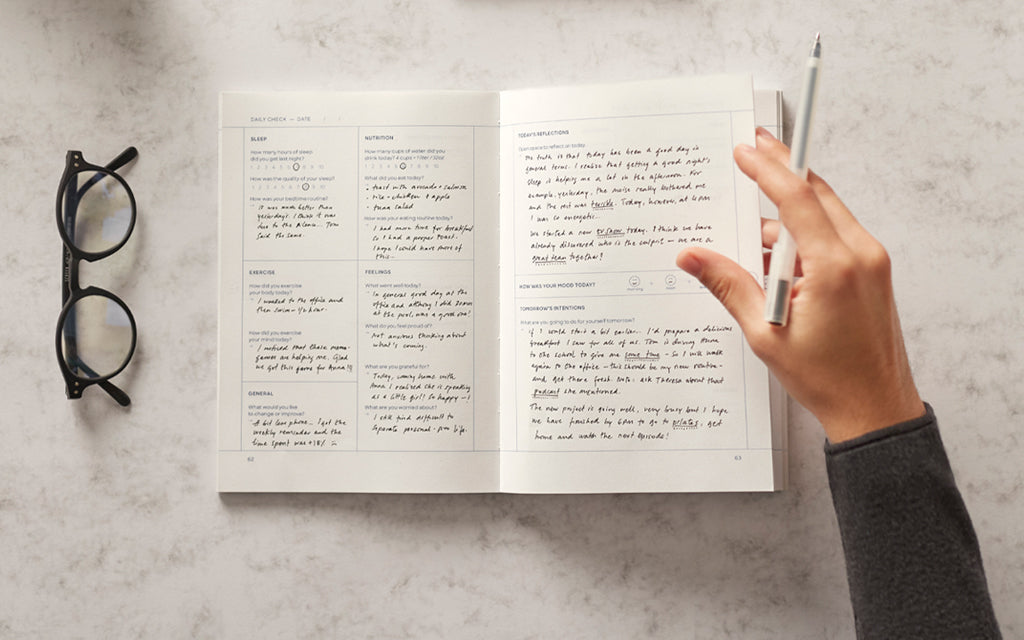 DAILY CHECK — DATE / /
SLEEP
How many hours of sleep
did you get last night?
1 2 3 4 5 6 7 8 9 10
How was the quality of your sleep?
1 2 3 4 5 6 7 8 9 10
How was your bedtime routine?
It was much better than
yesterday's. I think it was
due to the silence... Tom
said the same.
EXERCISE
How did you exercise
your body today?
I walked to the office and
then swim - 1/2 hour.
How did you exercise
your mind today?
I noticed that these memo-
games are helping me. Glad
we got this game for Anna!!!
GENERAL
What would you like
to change or improve?
A bit less phone... I got the
weekly reminder and the
time spent was +18% :(
62
NUTRITION
How many cups of water did you
drink today? 4 cups = 1 liter / 32oz
1 2 3 4 5 6 7 8 9 10
What did you eat today?
• toast with avocado + salmon
• rice + chicken & apple
• tuna salad
How was your eating routine today?
I had more time for breakfast
so I had a proper toast.
I hope I could have more of
this -
FEELINGS
What went well today?
In general good day at the
office and althoug I did 20 min
at the pool, was a good one!
What do you feel proud of?
Not anxious thinking about
what's coming.
What are you grateful for?
Today, coming home with
Anna I realized she is speaking
as a little girl! So happy -!
What are you worried about?
I still find difficult to
separate personal - pro life.
TODAY'S REFLECTIONS
Open space to reflect on today.
The truth is that today has been a good day in
general terms. I realize that getting a good night's
sleep is helping me a lot in the afternoon. For
example, yesterday, the noise really bothered me
and the rest was terrible. Today, however, at 4pm
I was so energetic.
We started a new tv show today. I think we have
already discovered who is the culprit - we are a
great team together!
HOW WAS YOUR MOOD TODAY?
TOMORROW'S INTENTIONS
What are you going to do for yourself tomorrow?
If I would start a bit earlier.. I'd prepare a delicious
breakfast I saw for all of us. Tom is driving them
to the school to give me some time - so I will walk
again to the office - this should be my new routine -
and get there fresh. Note: ask Theresa about that
podcast she mentioned.
The new project is going well, very lousy but I hope
we have finished by 6pm to go to pilates, get
home and watch the next episode!
63